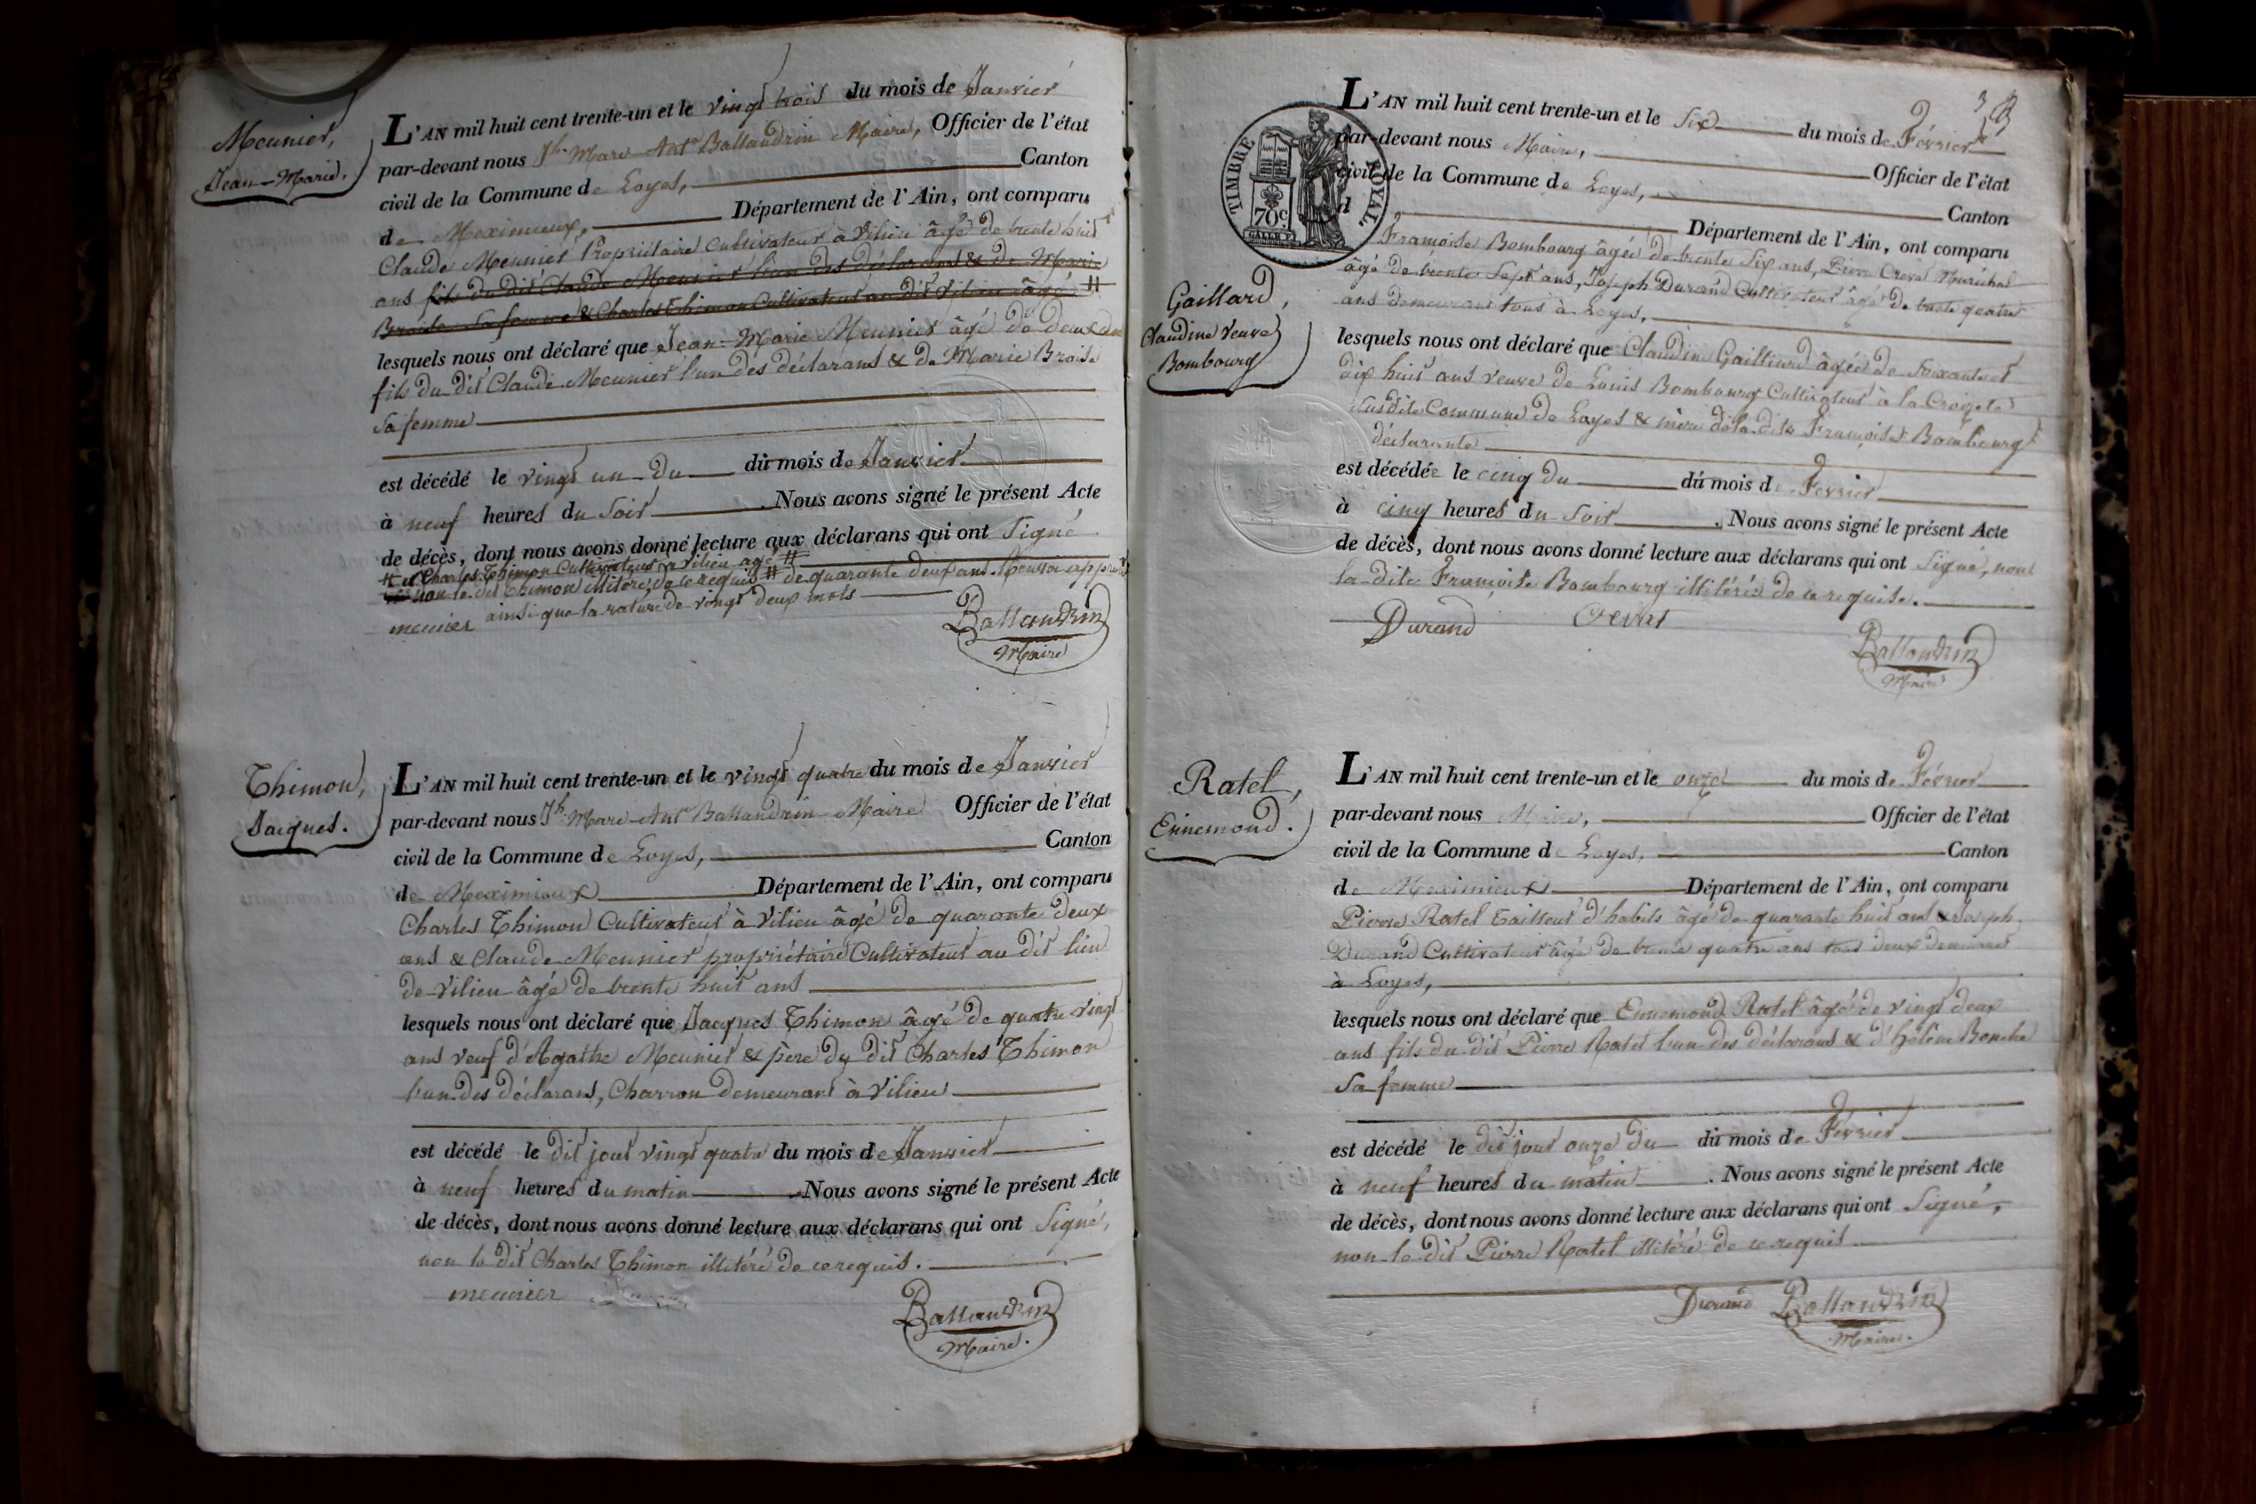 Meunier,
Jean-Marie.
L'AN mil huit cent trente-un et le vingt trois du mois de Janvier
par-devant nous Jh Marc Ante Ballandrin Maire, Officier de l'état
civil de la Commune de Loyes, Canton
de Meximieux, Département de l'Ain, ont comparu
Claude Meunier Propriétaire Cultivateur à Vilieu âgé de trente huit
ans fils du dit Claude Meunier l'un des déclarans & de Marie
Braise sa femme & Charles Thimon Cultivateur au dit Vilieu âgé #
lesquels nous ont déclaré que Jean-Marie Meunier âgé de deux ans
fils du dit Claude Meunier l'un des déclarans & de Marie Braise
Sa femme
est décédé le vingt un du du mois de Janvier
à neuf heures du Soir. Nous avons signé le présent Acte
de décès, dont nous avons donné lecture aux déclarans qui ont Signé
# et Charles Thimon Cultivateur à Vilieu âgé #
non le dit Thimon illitéré de ce requis # de quarante deux ans. Renvoi approuvé
ainsi que la rature de vingt deux mots
meunier
Ballandrin
Maire
Thimon,
Jacques.
L'AN mil huit cent trente-un et le vingt quatre du mois de Janvier
par-devant nous Jh Marc Ant Ballandrin Maire Officier de l'état
civil de la Commune de Loyes, Canton
de Meximieux Département de l'Ain, ont comparu
Charles Thimon Cultivateur à Vilieu âgé de quarante deux
ans & Claude Meunier propriétaire Cultivateur au dit lieu
de Vilieu âgé de trente huit ans
lesquels nous ont déclaré que Jacques Thimon âgé de quatre vingt
ans veuf d'Agathe Meunier & père du dit Charles Thimon
l'un des déclarans, Charron demeurant à Vilieu
est décédé le dit jour vingt quatre du mois de Janvier
à neuf heures du matin. Nous avons signé le présent Acte
de décès, dont nous avons donné lecture aux déclarans qui ont Signé,
non le dit Charles Thimon illitéré de ce requis.
meunier
Ballandrin
Maire.
3
TIMBRE ROYAL
70c.
Gaillard,
Claudine Veuve
Bombourg
L'AN mil huit cent trente-un et le Six du mois de Février
par-devant nous Maire, Officier de l'état
civil de la Commune de Loyes, Canton
d Département de l'Ain, ont comparu
Françoise Bombourg âgée de trente Six ans, Pierre Crevat Maréchal
âgé de trente Sept ans, Joseph Durand Cultivateur âgé de trente quatre
ans demeurant tous à Loyes,
lesquels nous ont déclaré que Claudine Gaillard âgée de Soixante et
dix huit ans veuve de Louis Bombourg Cultivateur à la Croizete
susdite Commune de Loyes & mère de la dite Françoise Bombourg
déclarante
est décédée le cinq du du mois de Février
à cinq heures du Soir. Nous avons signé le présent Acte
de décès, dont nous avons donné lecture aux déclarans qui ont Signé, non
la dite Françoise Bombourg illitérée de ce requise.
Durand Crevat
Ballandrin
Maire
Ratel,
Ennemond.
L'AN mil huit cent trente-un et le onze du mois de Février
par-devant nous Maire, Officier de l'état
civil de la Commune de Loyes, Canton
de Meximieux Département de l'Ain, ont comparu
Pierre Ratel Tailleur d'habits âgé de quarante huit ans & Joseph
Durand Cultivateur âgé de trente quatre ans tous deux demeurant
à Loyes,
lesquels nous ont déclaré que Ennemond Ratel âgé de vingt deux
ans fils du dit Pierre Ratel l'un des déclarans & d'hélène Bouche
Sa femme
est décédé le dit jour onze du du mois de Février
à neuf heures du matin. Nous avons signé le présent Acte
de décès, dont nous avons donné lecture aux déclarans qui ont Signé,
non le dit Pierre Ratel illitéré de ce requis
Durand Ballandrin
Maire.